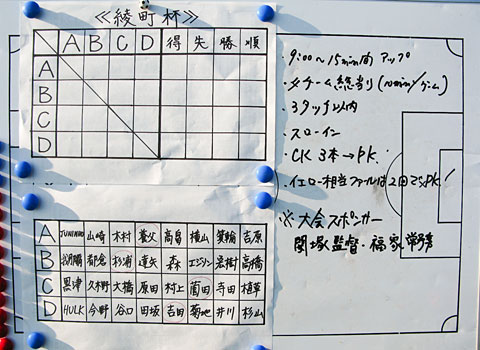 ≪綾町杯≫
A B C D 得 失 勝 順
A
B
C
D
A JUNINHO 山崎 木村 養父 高畠 横山 箕輪 吉原
B 都倉 杉浦 蓮矢 森 エジソン 宏樹 高橋
C 黒津 久木野 大橋 原田 村上 薗田 寺田 植草
D HULK 今野 谷口 田坂 吉田 菊地 井川 杉山
・9:00~15min間 アップ
・4チーム総当り(10min/ゲーム)
・3タッチ以内
・スローイン
・CK 3本→PK.
・イエロー相当ファールは2回でPK!
※大会スポンサー
関塚監督・福家常務